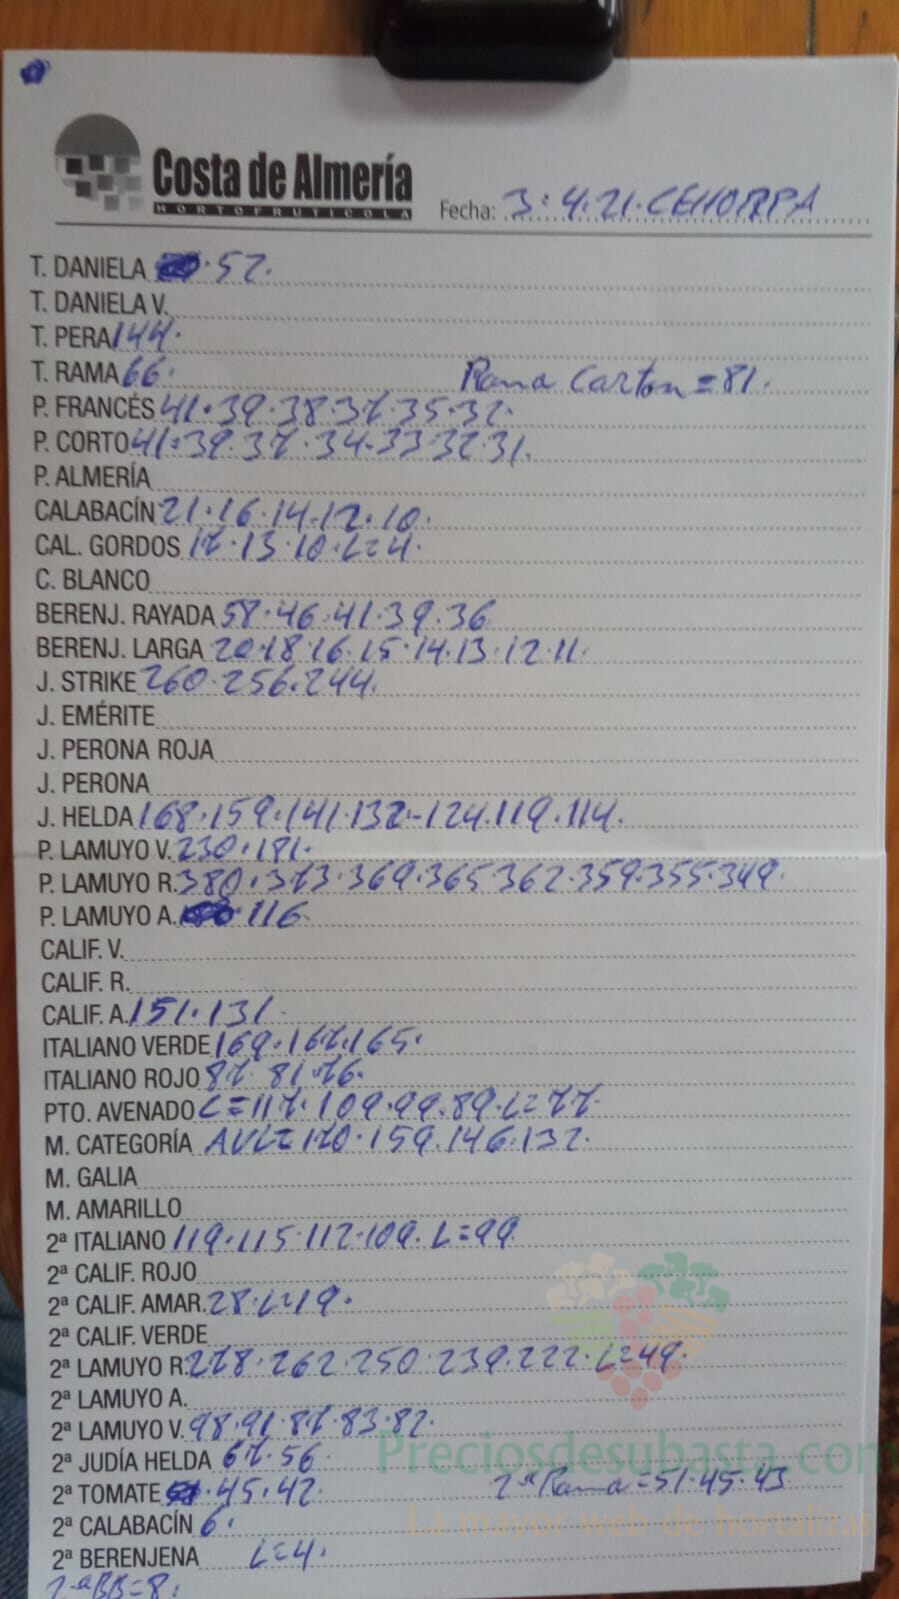 Costa de Almería
HORTOFRUTICOLA
Fecha: 3.4.21. CEHORPA
T. DANIELA 52.
T. DANIELA V.
T. PERA 144.
T. RAMA 66. Rama Carton=81.
P. FRANCÉS 41.39.38.37.35.32.
P. CORTO 41.39.37.34.33.32.31.
P. ALMERÍA
CALABACÍN 21.16.14.12.10.
CAL. GORDOS 17.13.10.L=4.
C. BLANCO
BERENJ. RAYADA 58.46.41.39.36
BERENJ. LARGA 20.18.16.15.14.13.12.11.
J. STRIKE 260.256.244.
J. EMÉRITE
J. PERONA ROJA
J. PERONA
J. HELDA 168.159.141.132-124.119.114.
P. LAMUYO V. 230.181.
P. LAMUYO R. 380.373.369.365.362.359.355.349.
P. LAMUYO A. 116
CALIF. V.
CALIF. R.
CALIF. A. 151.131.
ITALIANO VERDE 169.167.165.
ITALIANO ROJO 87.81.76.
PTO. AVENADO L=117.109.99.89.L=77.
M. CATEGORÍA AVL=170.159.146.132.
M. GALIA
M. AMARILLO
2ª ITALIANO 119.115.112.109.L=99.
2ª CALIF. ROJO
2ª CALIF. AMAR. 28.L=19.
2ª CALIF. VERDE
2ª LAMUYO R. 278.262.250.239.222.L=49.
2ª LAMUYO A.
2ª LAMUYO V. 98.91.87.83.82.
2ª JUDÍA HELDA 67.56
Preciosdesubasta.com
2ª TOMATE 45.42. 2ª Rama=51.45.43
2ª CALABACÍN 6.
La mayor web de hortalizas
2ª BERENJENA L=4.
2ªBB=8.